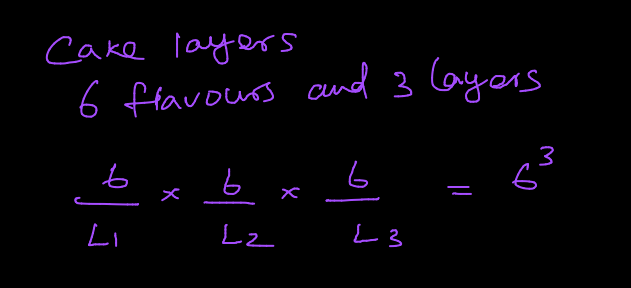 Cake layers
6 flavours and 3 layers
6 × 6 × 6 = 6³
L1 L2 L3